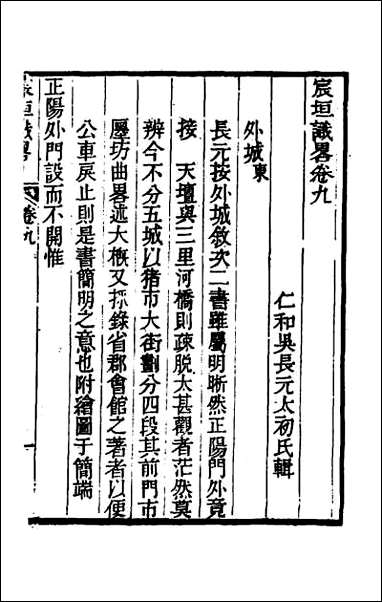 宸垣識畧卷九
仁和吳長元太初氏輯
外城東
長元按外城敘次二書雖屬明晰然正陽門外竟
接　天壇與三里河橋則疎脱太甚觀者茫然莫
辨今不分五城以猪市大街劃分四段其前門市
廛坊曲畧述大概又採錄省郡會館之著者以便
公車戾止則是書簡明之意也附繪圖于簡端
正陽外門設而不開惟
宸垣識畧
卷九
一